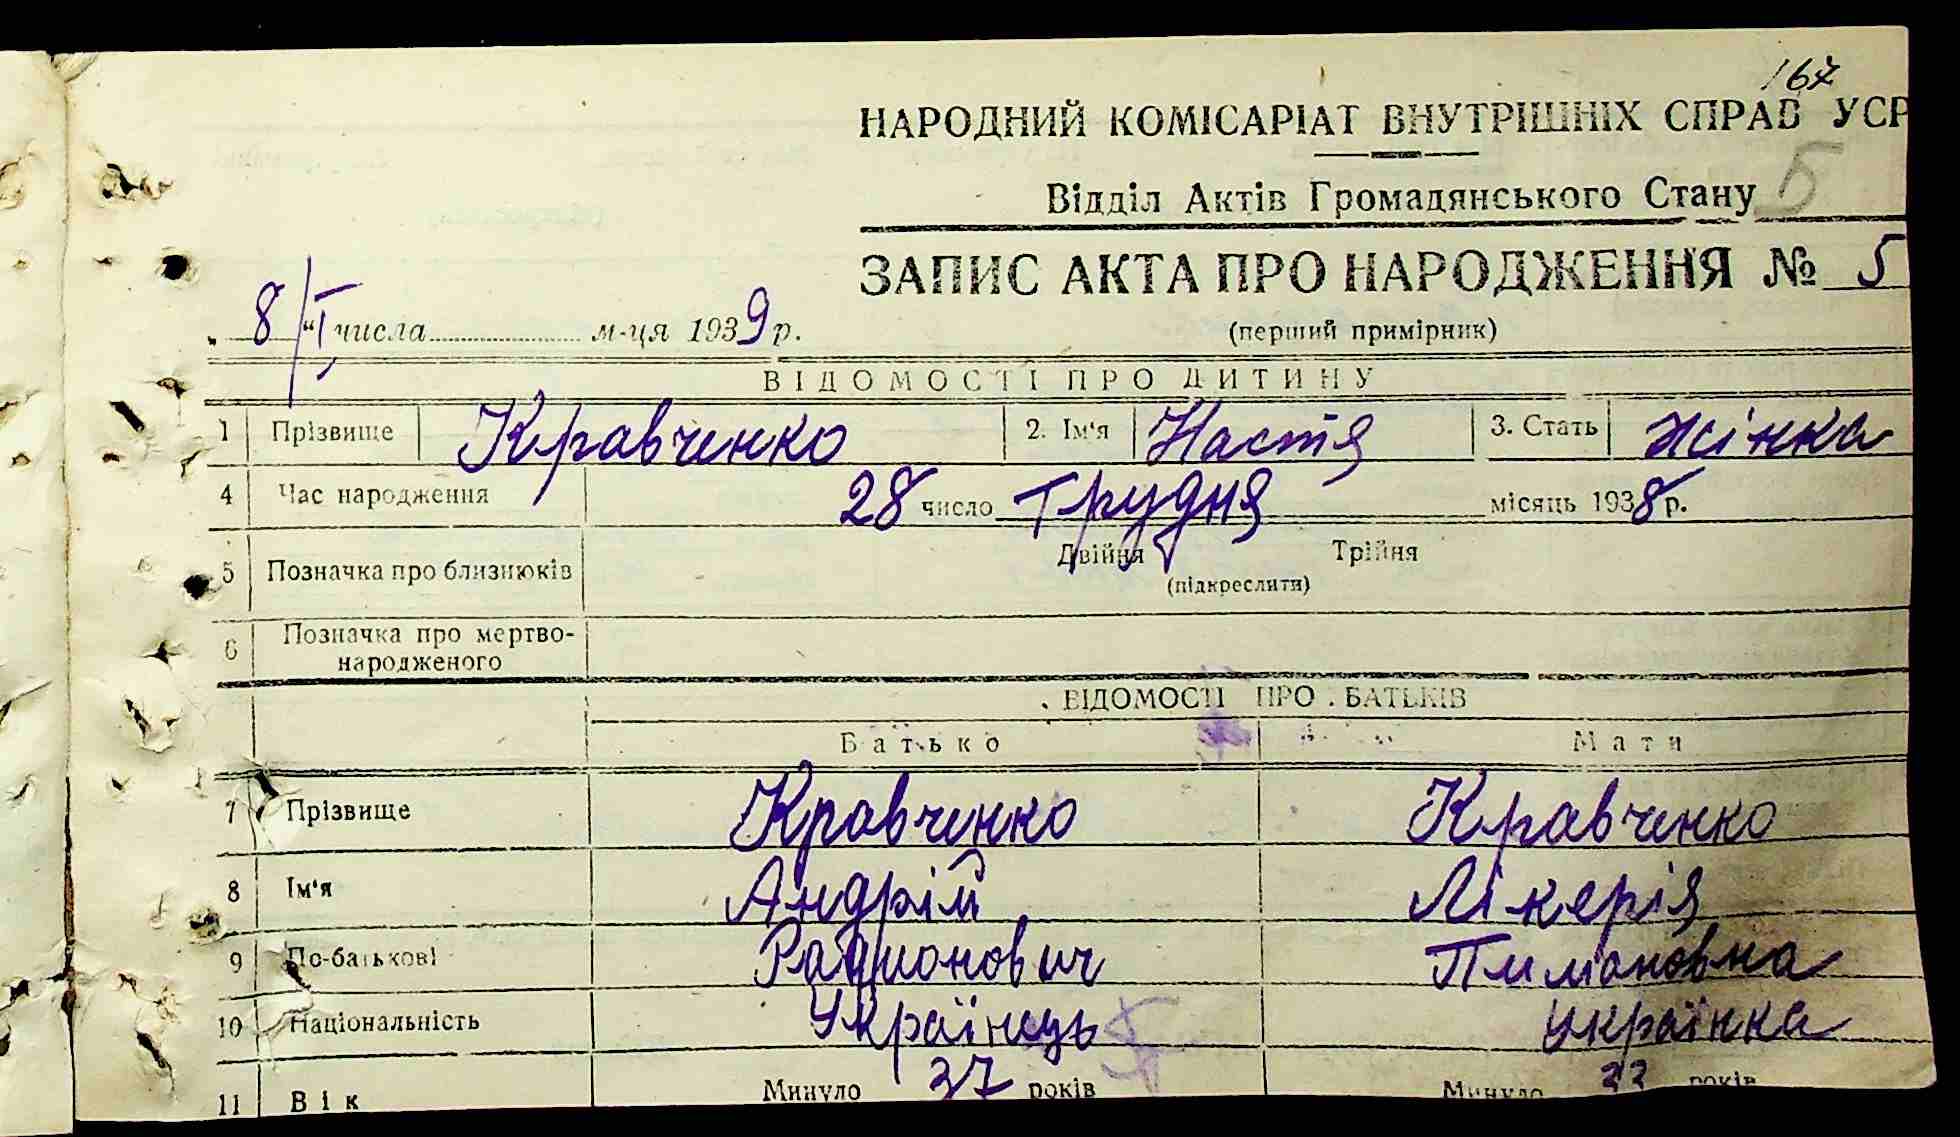 167
НАРОДНИЙ КОМІСАРІАТ ВНУТРІШНІХ СПРАВ УСР
Відділ Актів Громадянського Стану Б
ЗАПИС АКТА ПРО НАРОДЖЕННЯ № 5
„ 8/I " числа м-ця 1939 р. (перший примірник)
ВІДОМОСТІ ПРО ДИТИНУ
1 Прізвище Кравченко 2. Ім'я Настя 3. Стать жінка
4 Час народження 28 число Грудня місяць 1938 р.
5 Позначка про близнюків Двійня Трійня
(підкреслити)
6 Позначка про мертво-
народженого
ВІДОМОСТІ ПРО БАТЬКІВ
Батько Мати
7 Прізвище Кравченко Кравченко
8 Ім'я Андрій Лікерія
9 По-батькові Радионович Пимановна
10 Національність Українець Українка
11 Вік Минуло 37 років Минуло років